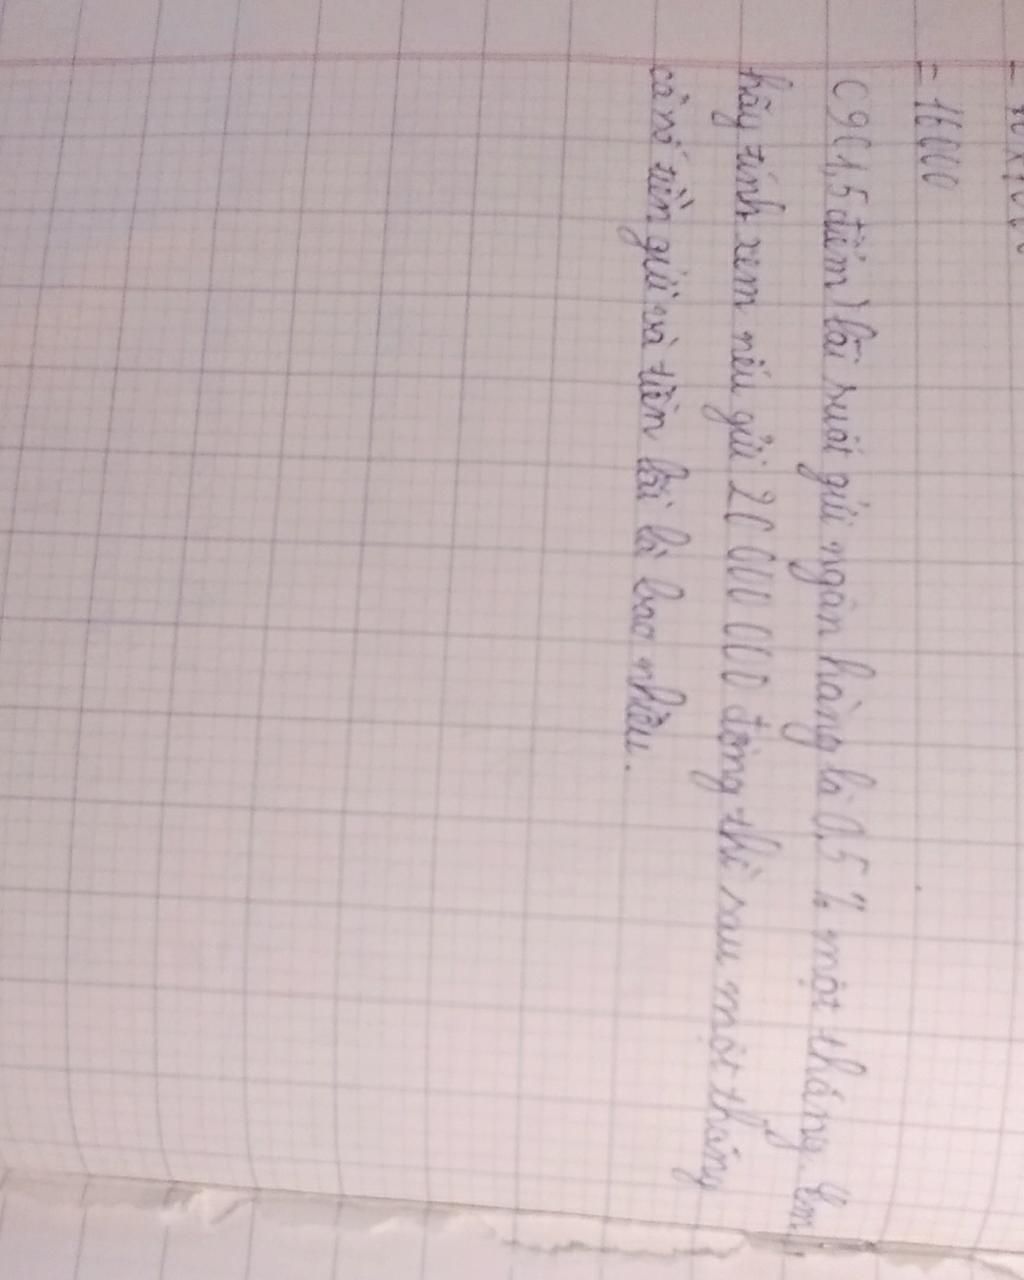 = 16000
C9 (1,5 điểm) lãi suất gửi ngân hàng là 0,5 % một tháng. Em
hãy tính xem nếu gửi 20 000 000 đồng thì sau một tháng
cả số tiền gửi và tiền lãi là bao nhiêu.